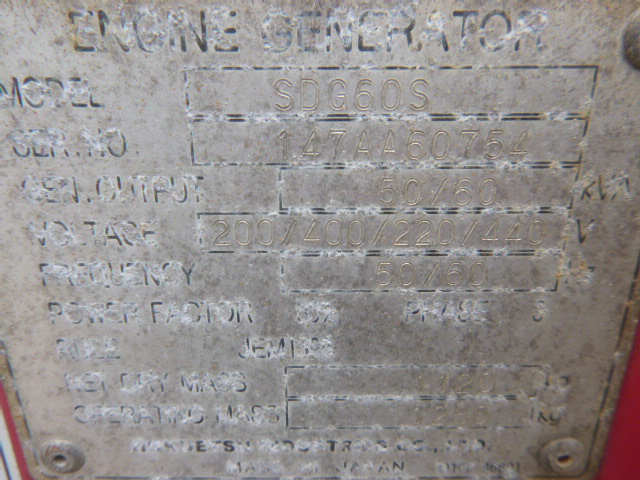 ENGINE GENERATOR
MODEL SDG60S
SER.NO. 147AA60754
GEN.OUTPUT 50/60 kVA
VOLTAGE 200/400/220/440 V
FREQUENCY 50/60 Hz
POWER FACTOR 80% PHASE 3
RULE
NET DRY MASS kg
OPERATING MASS kg
INDUSTRIES CO., LTD.
MADE IN JAPAN